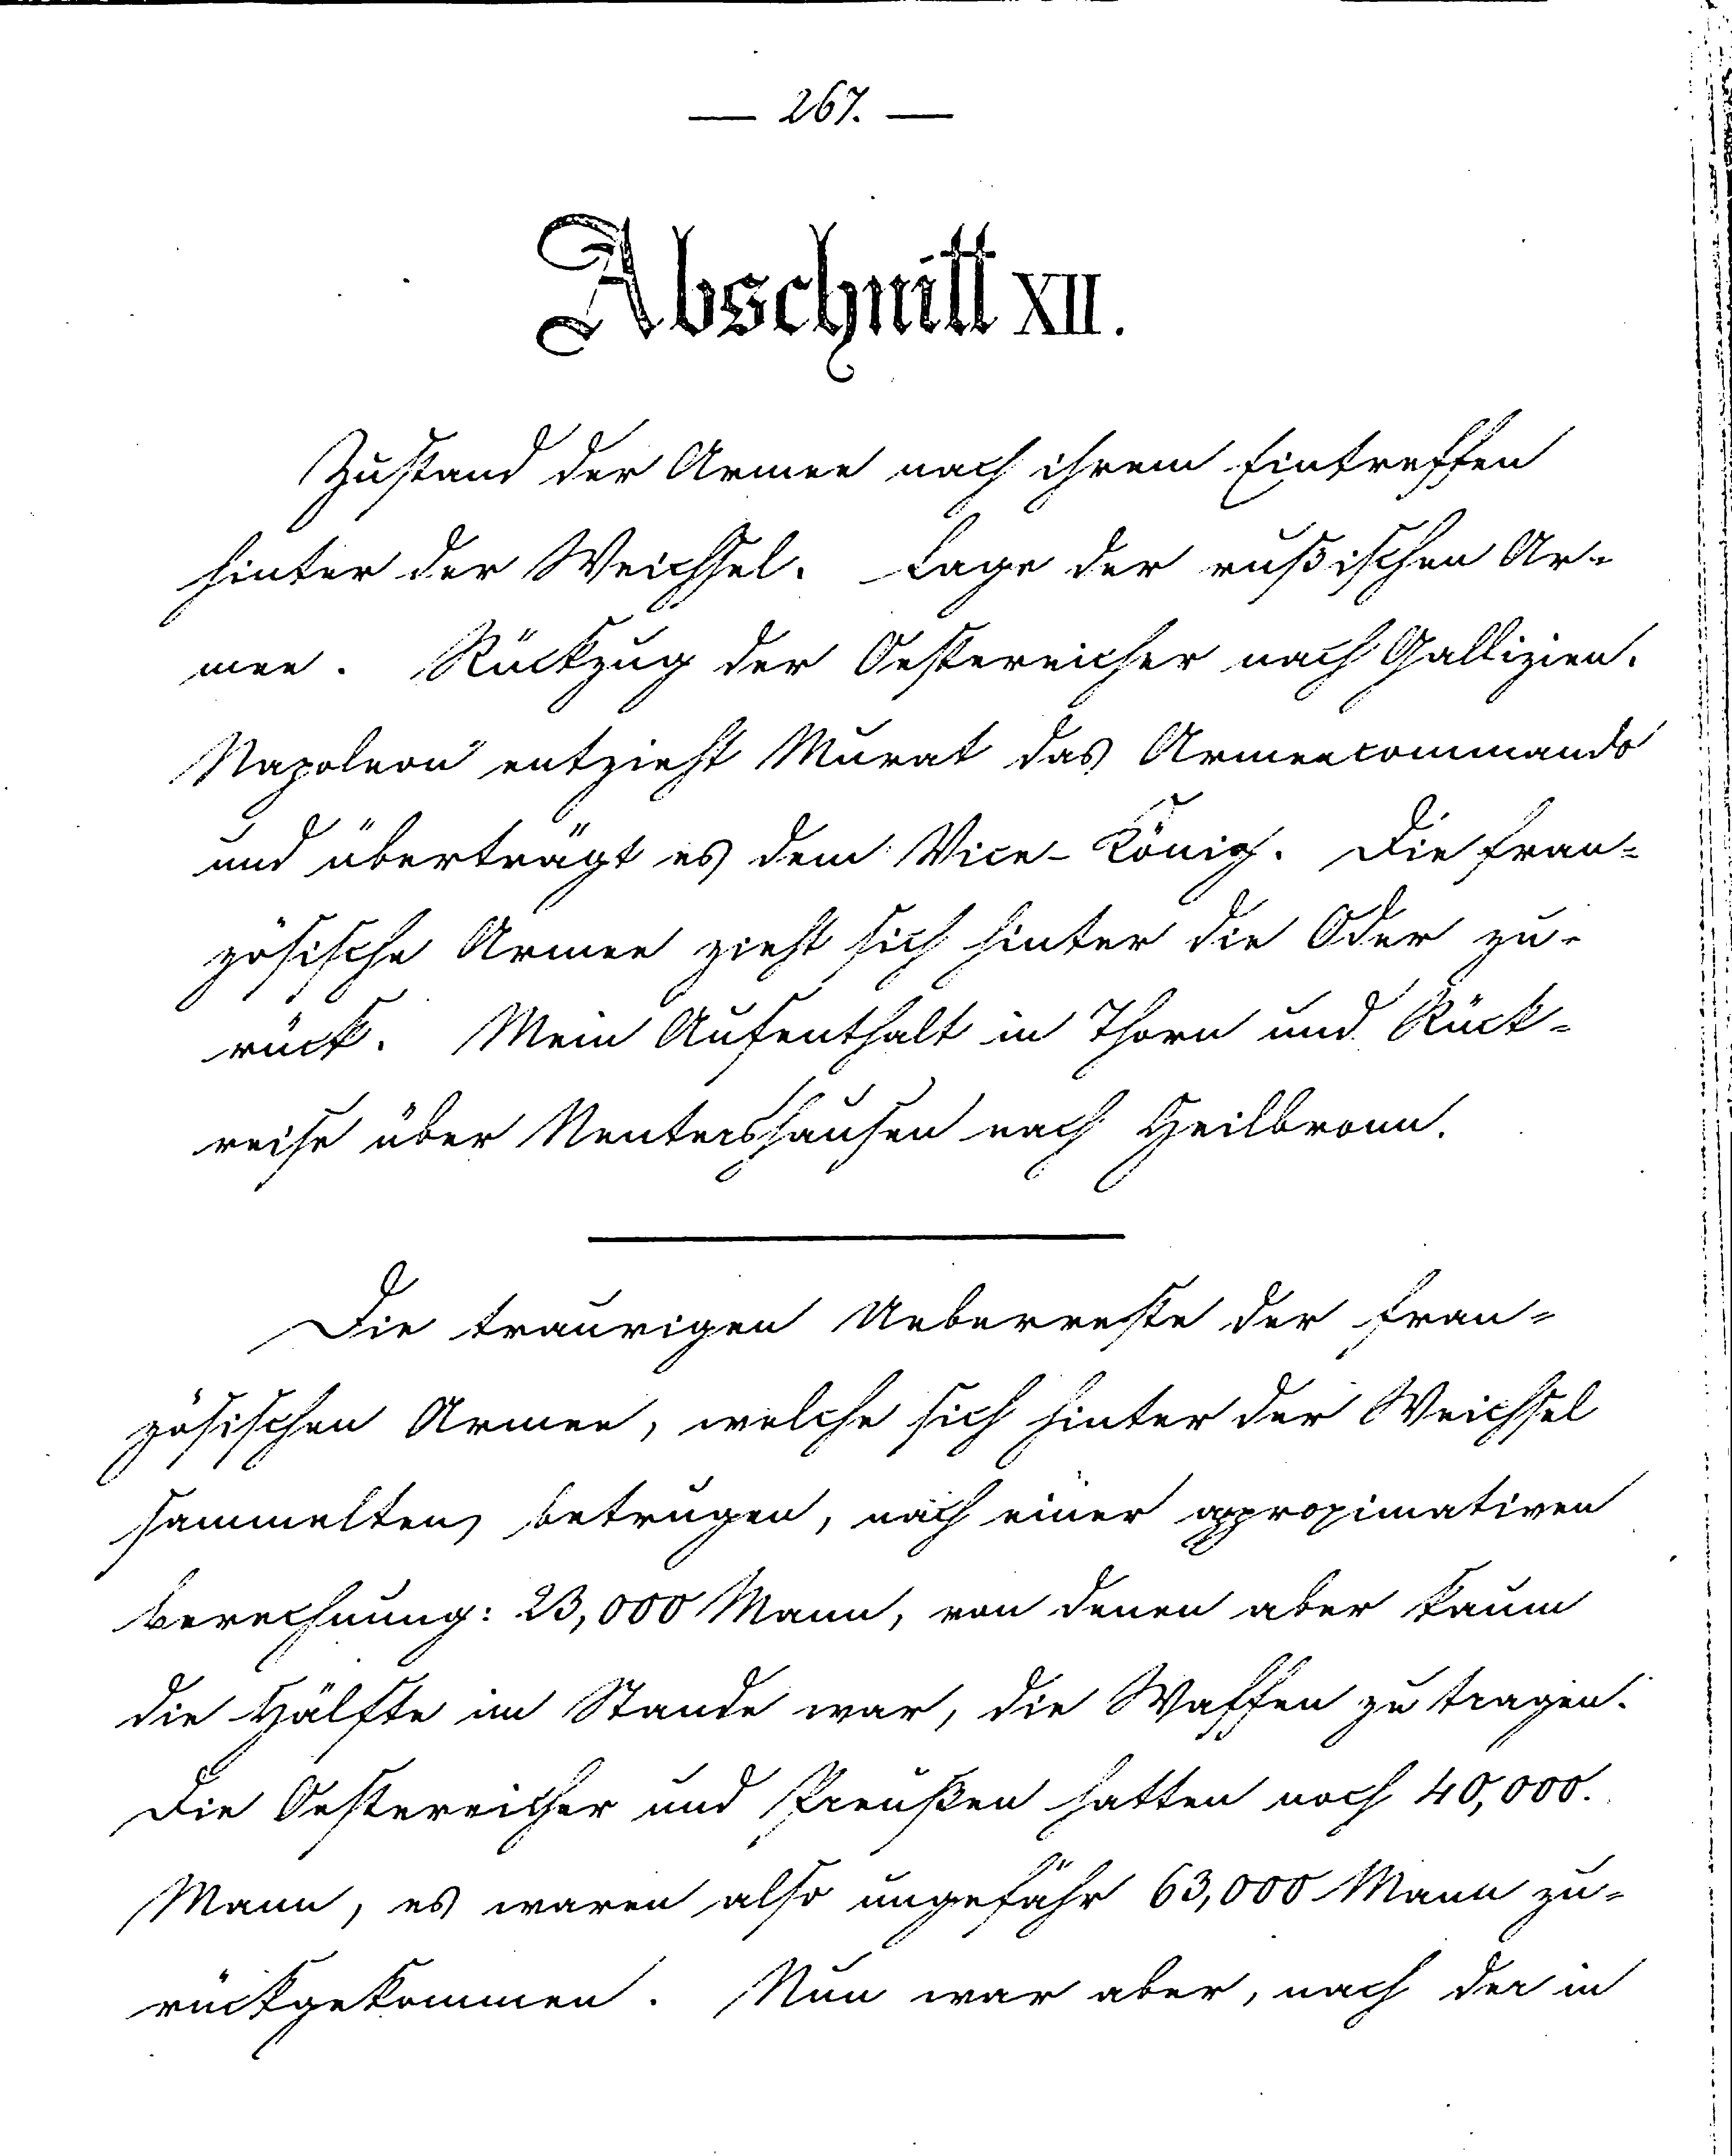 — 267. —
Abschnitt XII.
Zustand der Armee nach ihrem Eintreffen
hinter der Weichsel. Lage der rußischen Ar-
mee. Rückzug der Oestereicher nach Gallizien.
Napoleon entzieht Murat das Armeecommando
und überträgt es dem Vice-König. Die fran-
zösische Armee zieht sich hinter die Oder zu-
rück. Mein Aufenthalt in Thorn und Rück-
reise über Nentershausen nach Heilbronn.
Die traurigen Ueberreste der fran-
zösischen Armee, welche sich hinter der Weichsel
sammelten, betrugen, nach einer approximativen
Berechnung: 23,000 Mann, von denen aber kaum
die Hälfte im Stande war, die Waffen zu tragen.
Die Oestereicher und Preußen hatten noch 40,000.
Mann, es waren also ungefähr 63,000 Mann zu-
rückgekommen. Nun war aber, nach der in